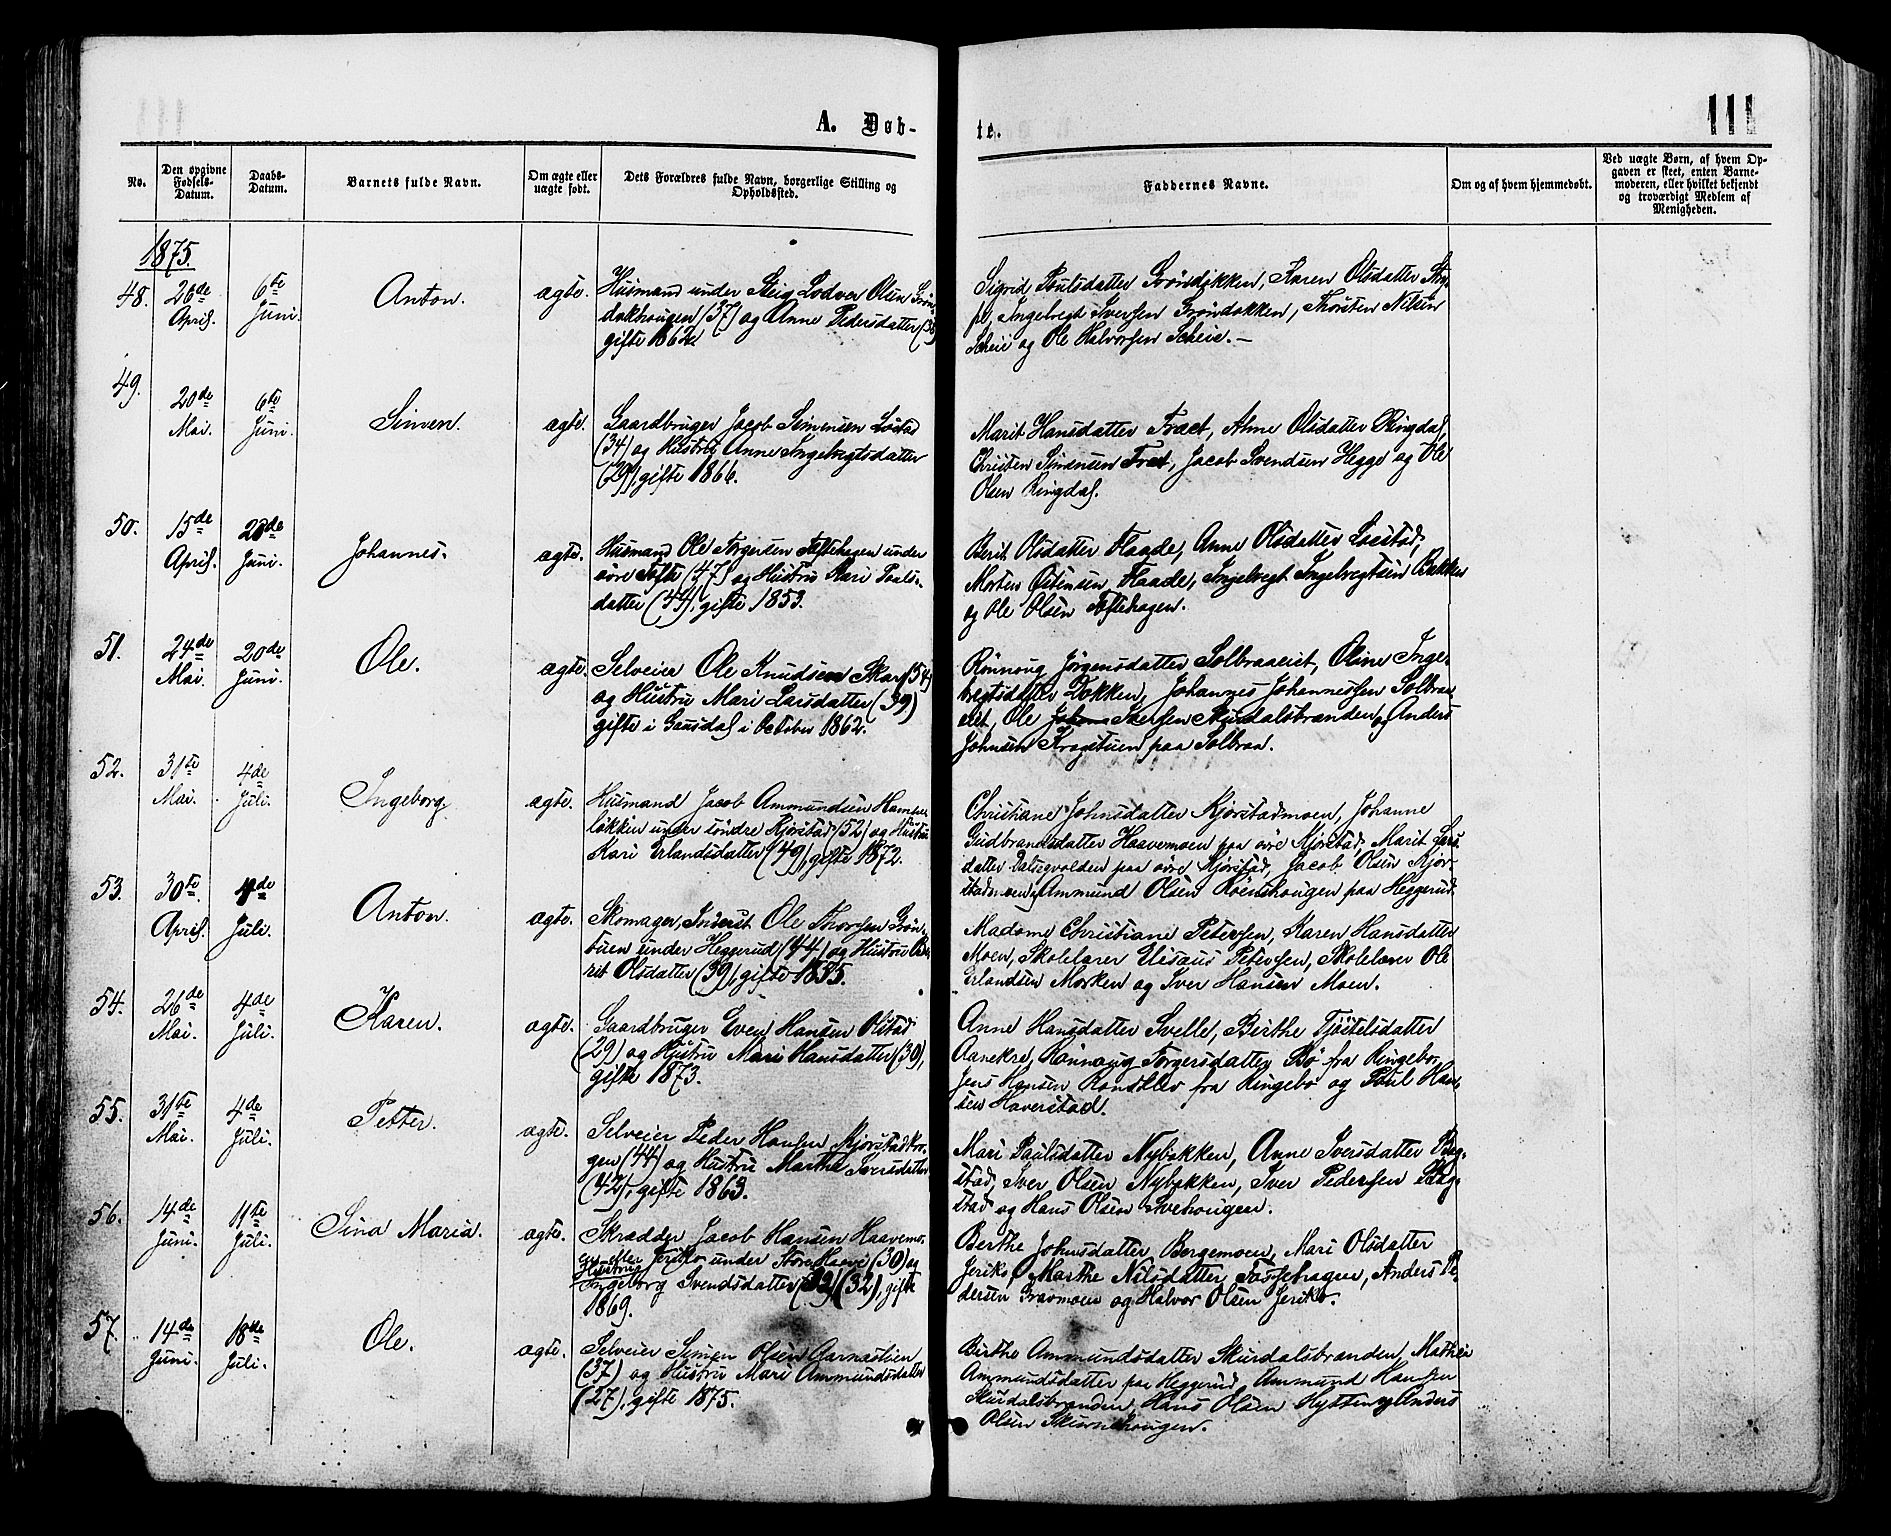 A. Døb-
te.
111
No.
Den opgivne Fødsels-Datum.
Daabs-Datum.
Barnets fulde Navn.
Om ægte eller uægte født.
Dets Forældres fulde Navn, borgerlige Stilling og Opholdssted.
Faddernes Navne.
Om og af hvem hjemmedøbt.
Ved uægte Børn, af hvem Opgaven er skeet, enten Barnemoderen, eller hvilket bekjendt og troværdigt Medlem af Menigheden.
1875.
48. 26de April. 6te Juni. Anton. ægte.
Husmand under Steig Lodver Olsen Grøn-
dokhougen (37) og Anne Pedersdatter
gifte 1862.
Sigrid Poulsdatter Gröndokken, Karen Olsdatter
Ingebregt Iversen Gröndokken, Thorsten Nilsen
Scheie og Ole Halvorsen Scheie. —
49. 20de Mai. 6te Juni. Simen. ægte.
Gaardbruger Jacob Simensen Lostad
(34) og Hustru Anne Ingebregtsdatter
(29), gifte 1866.
Marit Hansdatter Fræt, Anne Olsdatter Ringdal,
Christen Simensen Fræt, Jacob Svendsen Hegge og Ole
Olsen Ringdal.
50. 15de April. 20de Juni. Johannes. ægte.
Husmand Ole Torgersen Toftehagen under
øvre Tofte (47) og Hustru Kari Poals-
datter (44), gifte 1853.
Berit Olsdatter Flaade, Anne Olsdatter Lostad,
Morten Østensen Flaade, Ingebregt Ingebregtsen Bakken
og Ole Olsen Toftehagen.
51. 24de Mai. 20de Juni. Ole. ægte.
Selveier Ole Knudsen Skar (54)
og Hustru Mari Larsdatter (39)
gifte i Gausdal i October 1862.
Rønnoug Jörgensdatter Solbraaeiet, Oline Inge-
bregtsdatter Dokken, Johannes Johannessen Solbraa-
eiet, Ole Iversen Skurdalsbranden og Anders
Johnsen Krogstuen paa Solbraa.
52. 31te Mai. 4de Juli. Ingeborg. ægte.
Husmand Jacob Ammundsen
løkken under söndre Kjörstad (52) og Hustru
Kari Erlandsdatter (49), gifte 1872.
Christiane Johnsdatter Kjörstadmoen, Johanne
Gudbrandsdatter Haavemoen paa øvre Kjorstad, Marit Lars-
datter Dalsegvolden paa øvre Kjorstad, Jacob Olsen Kjør-
stadmoen, Ammund Olsen Roenshougen paa Heggerud.
53. 30te April. 4de Juli. Anton. ægte.
Skomager, Inderst Ole Thorsen Grøn-
tuen under Heggerud (44) og Hustru Be-
rit Olsdatter (39), gifte 1855.
Madame Christiane Petersen, Karen Hansdatter
Moen, Skolelærer Elisæus Petersen, Skolelærer Ole
Erlandsen Morken og Iver Hansen Moen.
54. 26de Mai. 4de Juli. Karen. ægte.
Gaardbruger Even Hansen Olstad
(29) og Hustru Mari Hansdatter (30),
gifte 1873.
Anne Hansdatter Svelle, Birthe Tjöstelsdatter
Aanekre, Rønnoug Torgersdatter Bø fra Ringebo,
Jens Hansen Randklev fra Ringebø og Poul Han-
sen Haverstad.
55. 31te Mai. 4de Juli. Petter. ægte.
Selveier Peder Hansen Kjorstadkro-
gen (44) og Hustru Marthe Iversdatter
(42), gifte 1863.
Mari Paulsdatter Nybakken, Anne Iversdatter Bag-
stad, Iver Olsen Nybakken, Iver Pedersen Bag-
stad og Hans Olsen Svehougen.
56. 14de Juni. 11te Juli. Sina Maria. ægte.
Skrædder Jacob Hansen Haavemo-
en eller Jeriko under Store Haave (30) og
Hustru Ingeborg Svendsdatter (32), gifte
1869.
Berthe Johnsdatter Borgemoen, Mari Olsdatter
Jeriko, Marthe Nilsdatter Tossehagen, Anders Pe-
dersen Gravmoen og Halvor Olsen Jeriko.
57. 14de Juni. 18de Juli. Ole. ægte.
Selveier Simen Olsen Aarnæstuen
(37) og Hustru Mari Ammundsdatter
(27), gifte 1875.
Birthe Ammundsdatter Skurdalsbranden, Mathea
Ammundsdatter paa Heggerud, Ammund Hansen
Skurdalsbranden, Hans Olsen Hytten og Anders
Olsen